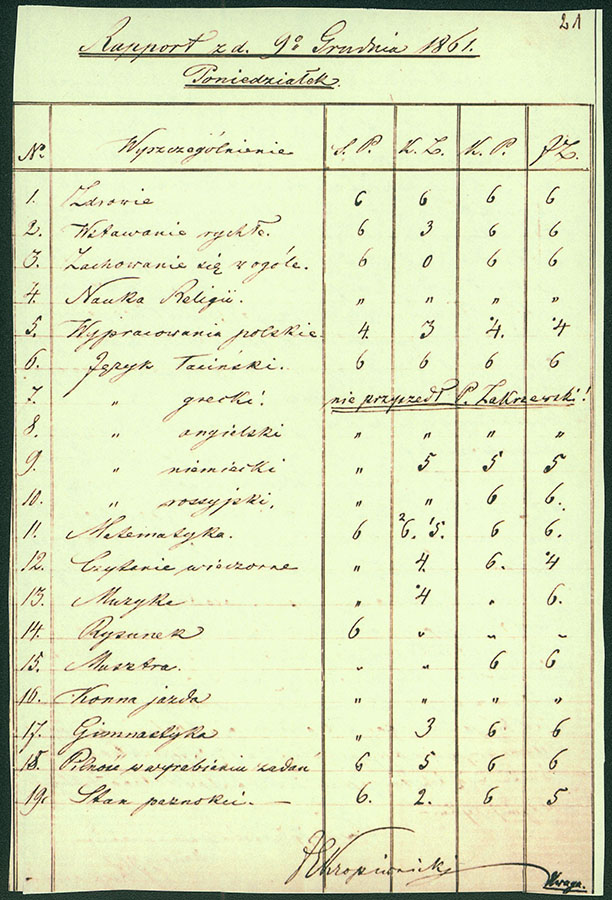 21
Rapport z d. 9º Grudnia 1861.
Poniedziałek.
Nº Wyszczególnienie S. P. K. Z. K. P. J Z.
1. Zdrowie 6 6 6 6
2. Wstawanie rychłe. 6 3 6 6
3. Zachowanie się w ogóle. 6 0 6 6
4. Nauka Religii. " " " "
5. Wypracowania polskie 4. 3 4. 4
6. Język łaciński. 6 6 6 6
7. " grecki. nie przyszedł P. Zakrzewski!
8. " angielski " " " "
9. " niemiecki " 5 5 5
10. " rossyjski. " " 6 6.
11. Matematyka. 6 6. 5. 6 6.
12. Czytanie wieczorne " 4. 6. 4
13. Muzyka " 4 " 6.
14. Rysunek 6 " " "
15. Musztra. " " 6 6
16. Konna jazda " " " "
17. Gimnastyka " 3 6 6
18. Pilność w wyrabianiu zadań 6 5 6 6
19. Stan paznokci. — 6. 2. 6 5
Kropiwnicki
Uwaga.